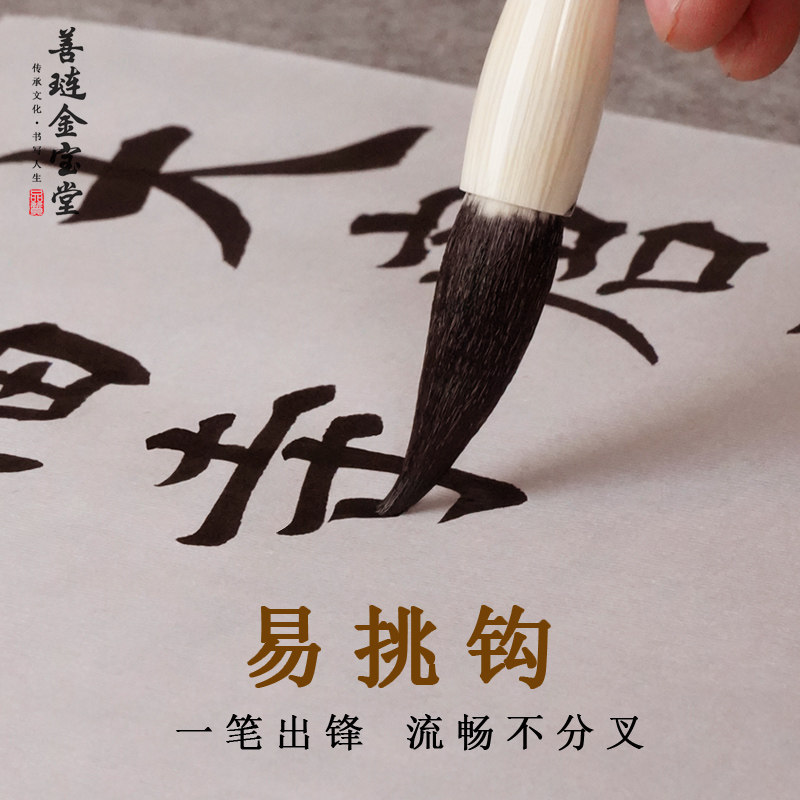 善琏金宝堂
传承文化·书写人生
易挑钩
一笔出锋 流畅不分叉